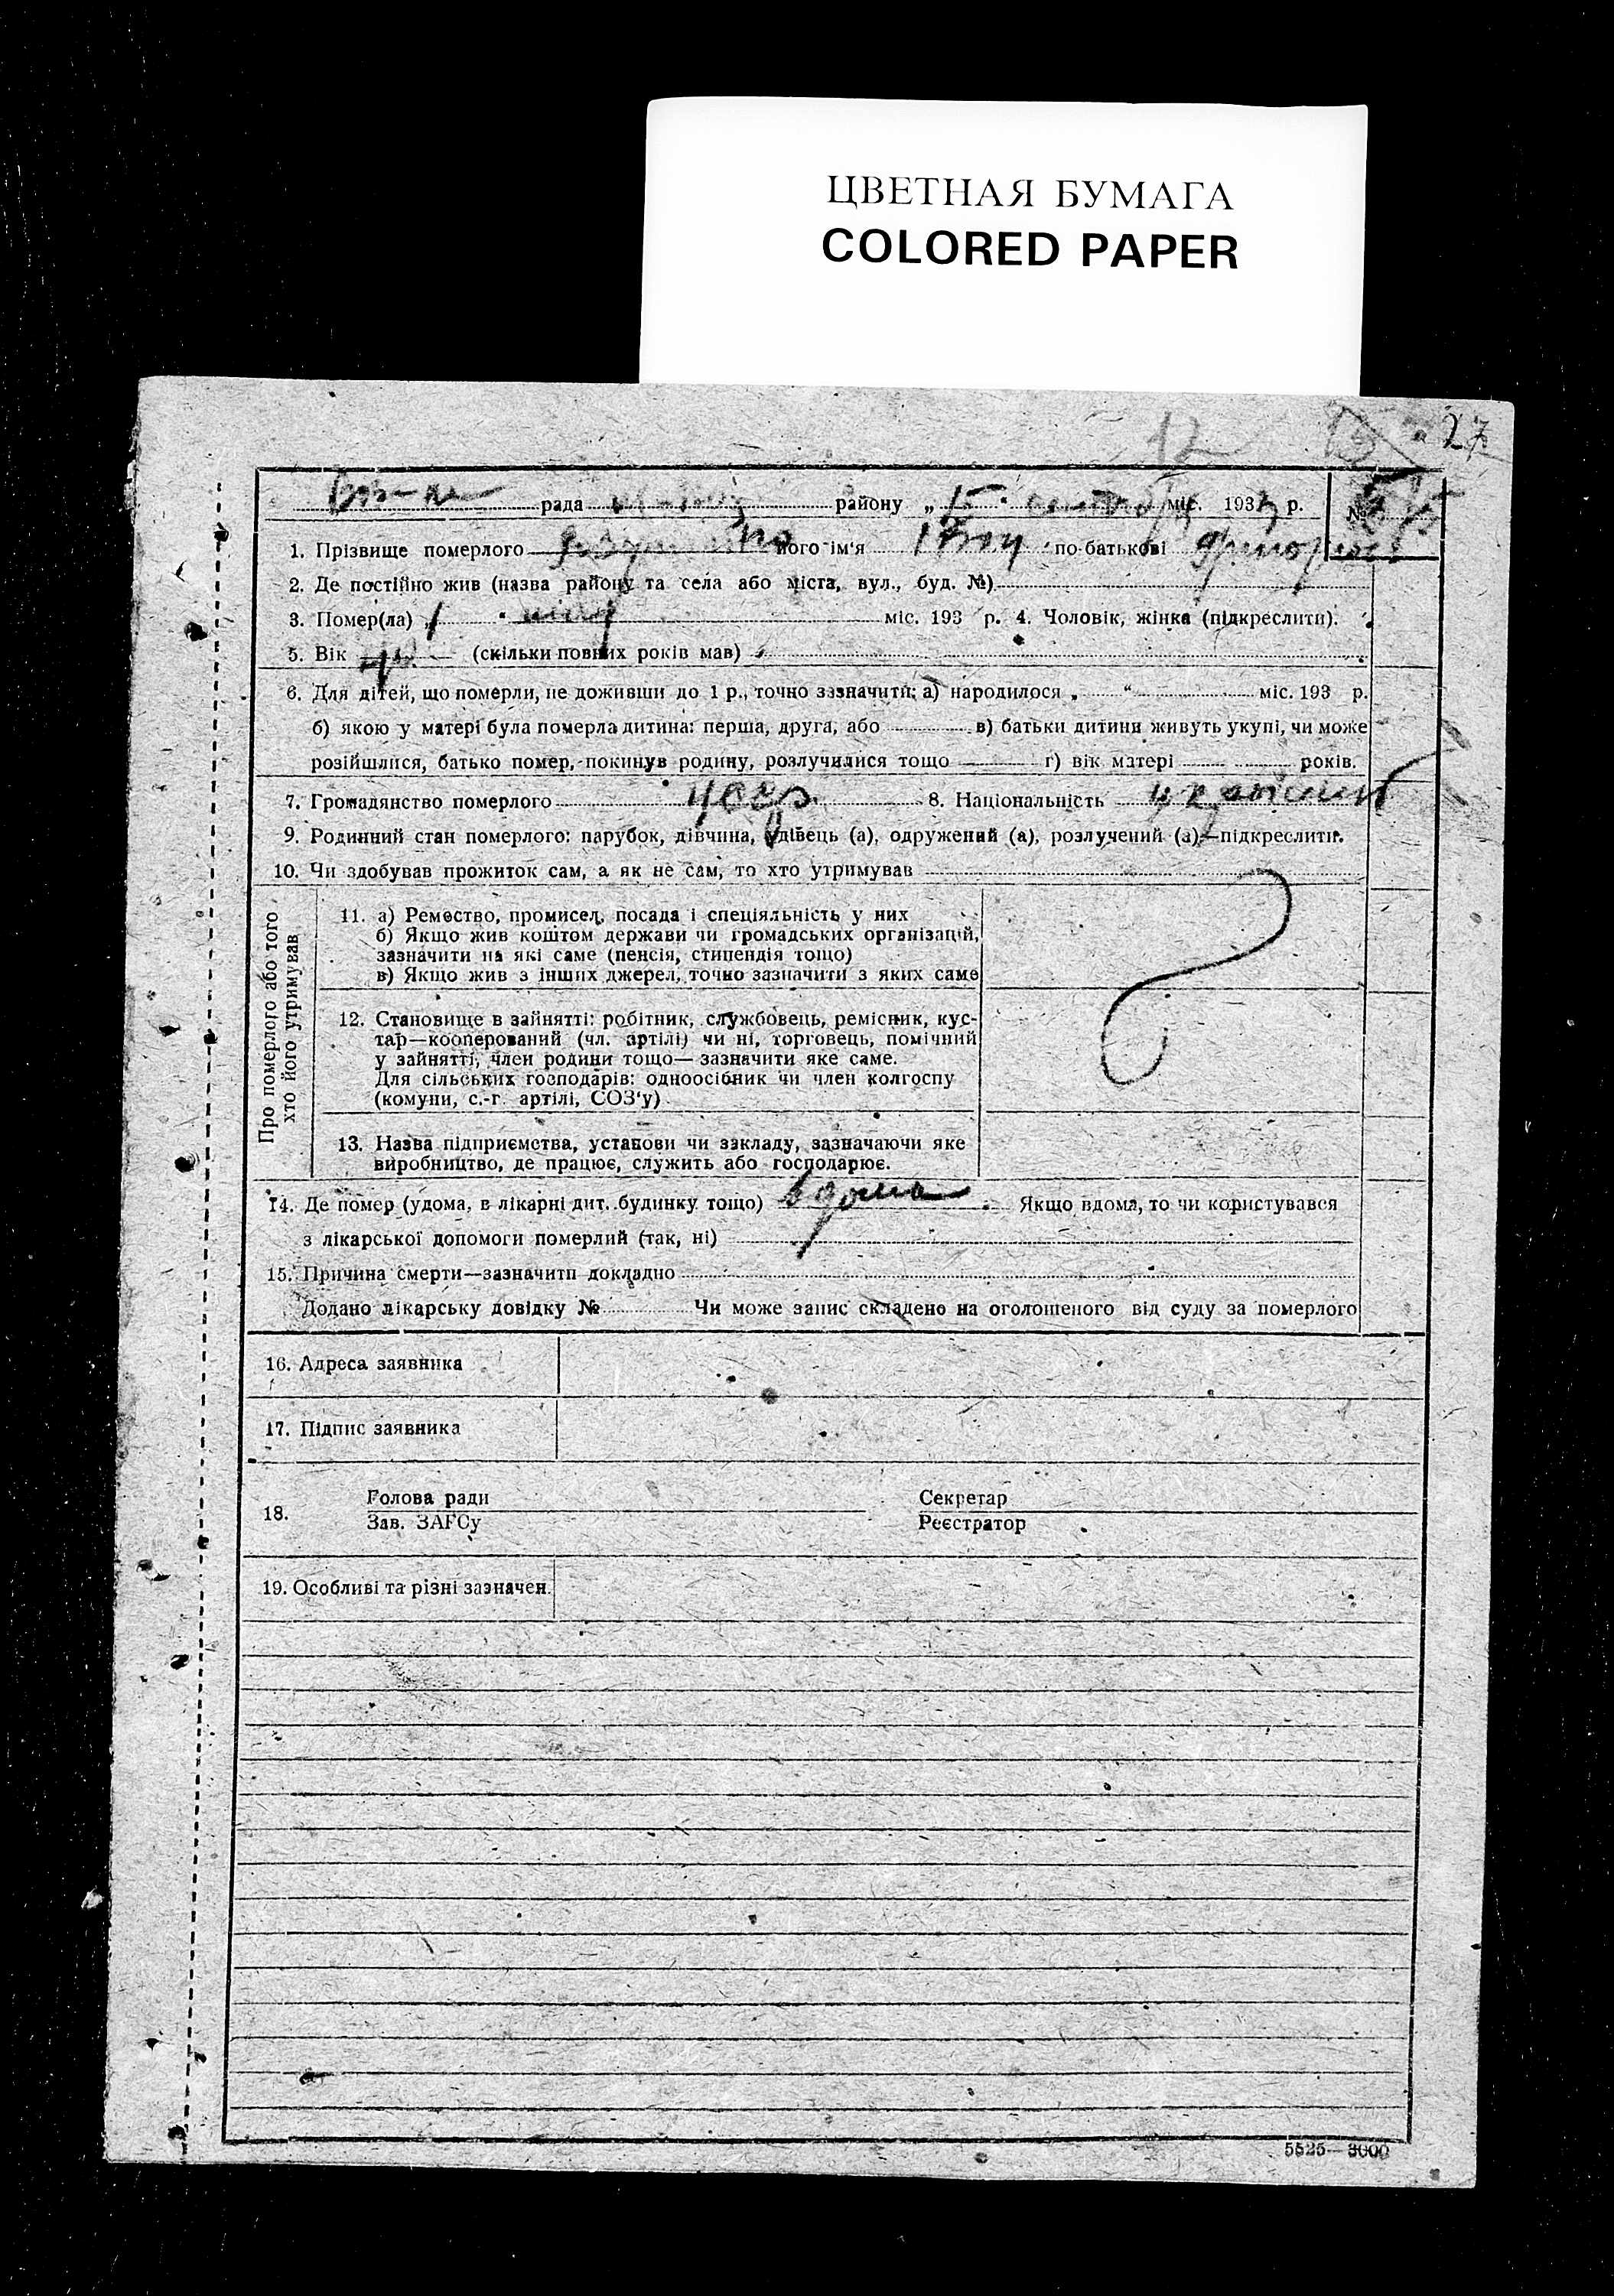 ЦВЕТНАЯ БУМАГА
COLORED PAPER
12
27
рада району „15“ міс. 1933 р. №
1. Прізвище померлого його ім'я по-батькові
2. Де постійно жив (назва району та села або міста, вул., буд. №)
3. Помер(ла) „1“ мая міс. 193 р. 4. Чоловік, жінка (підкреслити).
5. Вік (скільки повних років мав)
6. Для дітей, що померли, не доживши до 1 р., точно зазначити: а) народилося „ “ міс. 193 р.
б) якою у матері була померла дитина: перша, друга, або в) батьки дитини живуть укупі, чи може
розійшлися, батько помер, покинув родину, розлучилися тощо г) вік матері років.
7. Громадянство померлого УССР 8. Національність
9. Родинний стан померлого: парубок, дівчина, вдівець (а), одружений (а), розлучений (а)—підкреслити.
10. Чи здобував прожиток сам, а як не сам, то хто утримував
Про померлого або того
хто його утримував
11. а) Ремество, промисел, посада і спеціяльність у них
б) Якщо жив коштом держави чи громадських організацій,
зазначити на які саме (пенсія, стипендія тощо)
в) Якщо жив з інших джерел, точно зазначити з яких саме
12. Становище в зайнятті: робітник, службовець, ремісник, кус-
тар—кооперований (чл. артілі) чи ні, торговець, помічний
у зайнятті, член родини тощо—зазначити яке саме.
Для сільських господарів: одноосібник чи член колгоспу
(комуни, с.-г. артілі, СОЗ'у)
13. Назва підприємства, установи чи закладу, зазначаючи яке
виробництво, де працює, служить або господарює.
14. Де помер (удома, в лікарні дит. будинку тощо) вдома Якщо вдома, то чи користувався
з лікарської допомоги померлий (так, ні)
15. Причина смерти—зазначити докладно
Додано лікарську довідку № Чи може запис складено на оголошеного від суду за померлого
16. Адреса заявника
17. Підпис заявника
18. Голова ради Секретар
Зав. ЗАГСу Реєстратор
19. Особливі та різні зазначен.
5525—3000